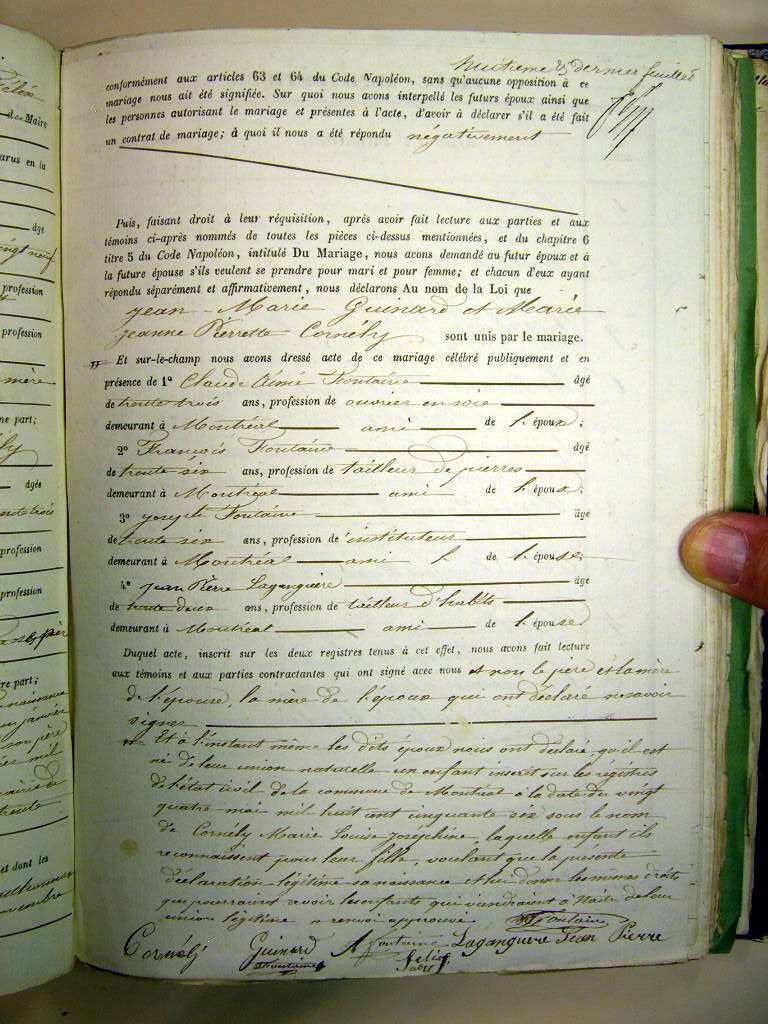 huitième & dernier feuillet
conformément aux articles 63 et 64 du Code Napoléon, sans qu'aucune opposition à ce
mariage nous ait été signifiée. Sur quoi nous avons interpellé les futurs époux ainsi que
les personnes autorisant le mariage et présentes à l'acte, d'avoir à déclarer s'il a été fait
un contrat de mariage; à quoi il nous a été répondu négativement
Puis, faisant droit à leur réquisition, après avoir fait lecture aux parties et aux
témoins ci-après nommés de toutes les pièces ci-dessus mentionnées, et du chapitre 6
titre 5 du Code Napoléon, intitulé Du Mariage, nous avons demandé au futur époux et à
la future épouse s'ils veulent se prendre pour mari et pour femme; et chacun d'eux ayant
répondu séparément et affirmativement, nous déclarons Au nom de la Loi que
Jean-Marie Guinard et Marie
Jeanne Pierrette Cornély sont unis par le mariage.
Et sur-le-champ nous avons dressé acte de ce mariage célébré publiquement et en
présence de 1º Claude Aimé Fontaine âgé
de trente trois ans, profession de ouvrier en soie
demeurant à Montréal ami de l'époux;
2º François Fontaine âgé
de trente six ans, profession de tailleur de pierres
demeurant à Montréal ami de l'époux;
3º Joseph Fontaine âgé
de trente six ans, profession de instituteur
demeurant à Montréal ami de l'épouse;
4º Jean Pierre Laganguère âgé
de trente deux ans, profession de tailleur d'habits
demeurant à Montréal ami de l'épouse
Duquel acte, inscrit sur les deux registres tenus à cet effet, nous avons fait lecture
aux témoins et aux parties contractantes qui ont signé avec nous et non le père et la mère
de l'épouse, la mère de l'époux qui ont déclaré ne savoir
signer
Et à l'instant même les dits époux nous ont déclaré qu'il est
né de leur union naturelle un enfant inscrit sur les régistres
de l'état civil de la commune de Montréal à la date du vingt
quatre mai mil huit cent cinquante six sous le nom
de Cornély Marie Louise Joséphine, laquelle enfant ils
reconnaissent pour leur fille, voulant que la présente
déclaration légitime sa naissance et lui donne les mêmes droits
que pourraient avoir les enfants qui viendraient à naître de leur
union légitime renvoi approuvé Fontaine
Cornely Guinard A Fontaine Laganguere Jean Pierre
Fontaine